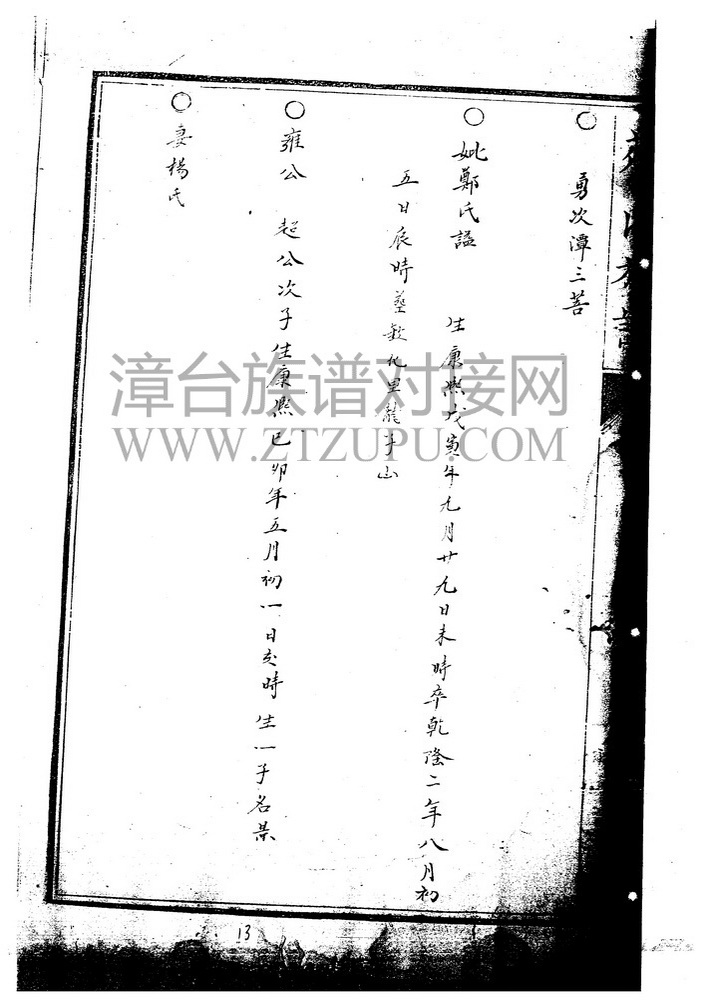 勇次潭三菩
妣鄭氏諡 生康熙戊寅年九月廿九日未時卒乾隆二年八月初
五日辰時葬敦化里龍手山
雍公 超公次子生康熙己卯年五月初一日亥時生一子名杲
妻楊氏
漳台族谱对接网
WWW.ZTZUPU.COM
13